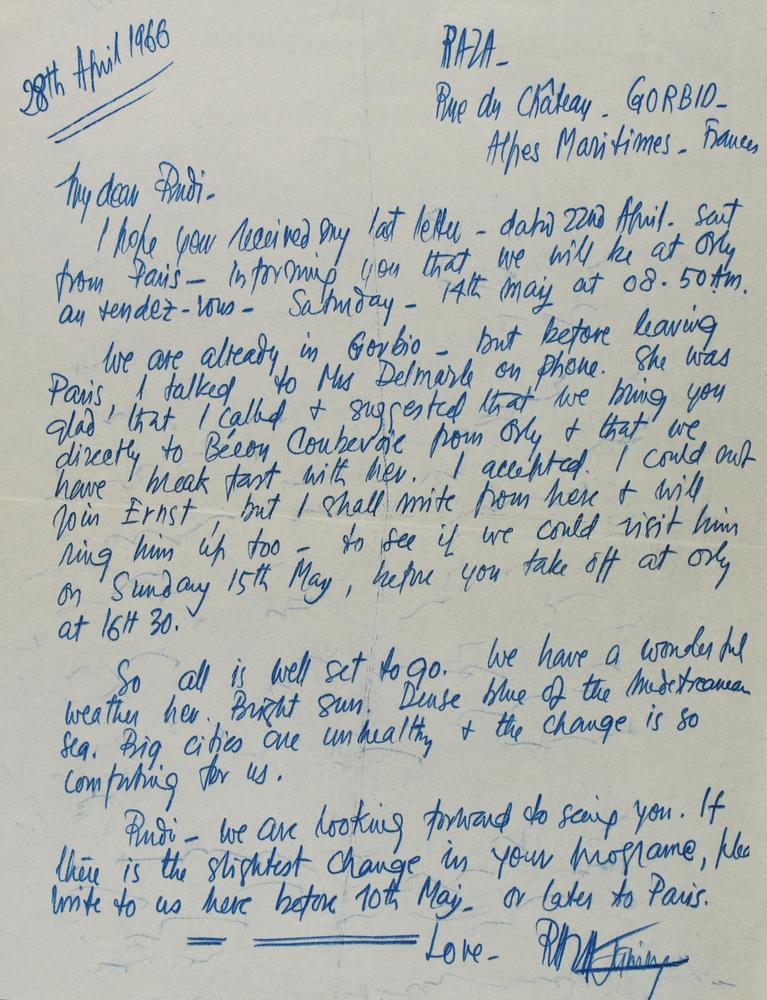 28th April 1966
RAZA-
Rue du Château - GORBIO-
Alpes Maritimes - France
My dear Rudi-
I hope you received my last letter - dated 22nd April. sent
from Paris - informing you that we will be at Orly
au rendez-vous - Saturday - 14th May at 08.50 Am.
We are already in Gorbio - but before leaving
Paris, I talked to Mrs Delmarle on phone. She was
glad that I called & suggested that we bring you
directly to Bécon Courbevoie from Orly & that we
have break fast with her. I accepted. I could not
join Ernst, but I shall write from here & will
ring him up too - to see if we could visit him
on Sunday 15th May, before you take off at Orly
at 16H 30.
So all is well set to go. We have a wonderful
weather her. Bright sun. Dense blue of the Medeterranean
sea. Big cities are unhealthy & the change is so
comforting for us.
Rudi - we are looking forward to seing you. If
there is the slightest change in your programe, plea
write to us here before 10th May - or later to Paris.
Love- RAZA